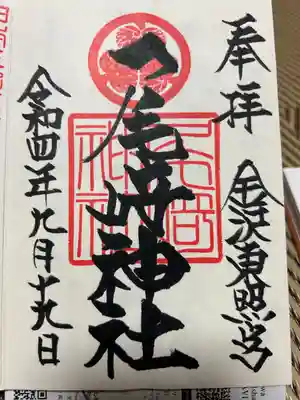 奉拝
金沢東照宮
尾﨑神社
令和四年九月十九日
尾崎神社